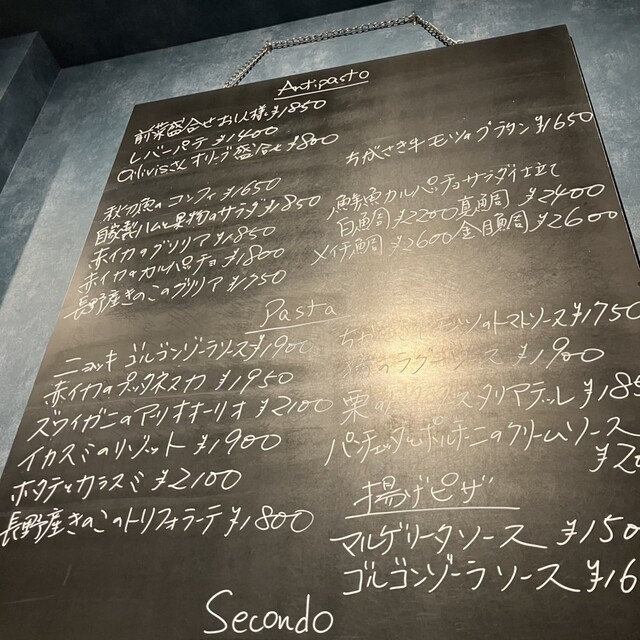 Antipasto
前菜盛合せお1人様 ¥1850
レバーパテ ¥1400
Olivisさんオリーブ盛合せ ¥800
秋刀魚のコンフィ ¥1650
自家製ハムと果物のサラダ ¥1850
赤イカのグリリア ¥1850
赤イカのカルパッチョ ¥1800
長野産きのこのグリリア ¥1750
ちがさき牛モツのグラタン ¥1650
鮮魚カルパッチョサラダ仕立て
白鯛 ¥2200 真鯛 ¥2400
メイチ鯛 ¥2600 金目鯛 ¥2600
Pasta
ニョッキ ゴルゴンゾーラソース ¥1900
赤イカのプッタネスカ ¥1950
ズワイガニのアリオオーリオ ¥2100
イカスミのリゾット ¥1900
ホタテとカラスミ ¥2100
長野産きのこのトリフォラーテ ¥1800
モツのトマトソース ¥1750
のラグーソース ¥1900
栗の タリアテッレ ¥185
パンチェッタとポルチーニのクリームソース
¥20
揚げピザ
マルゲリータソース ¥150
ゴルゴンゾーラソース ¥16
Secondo